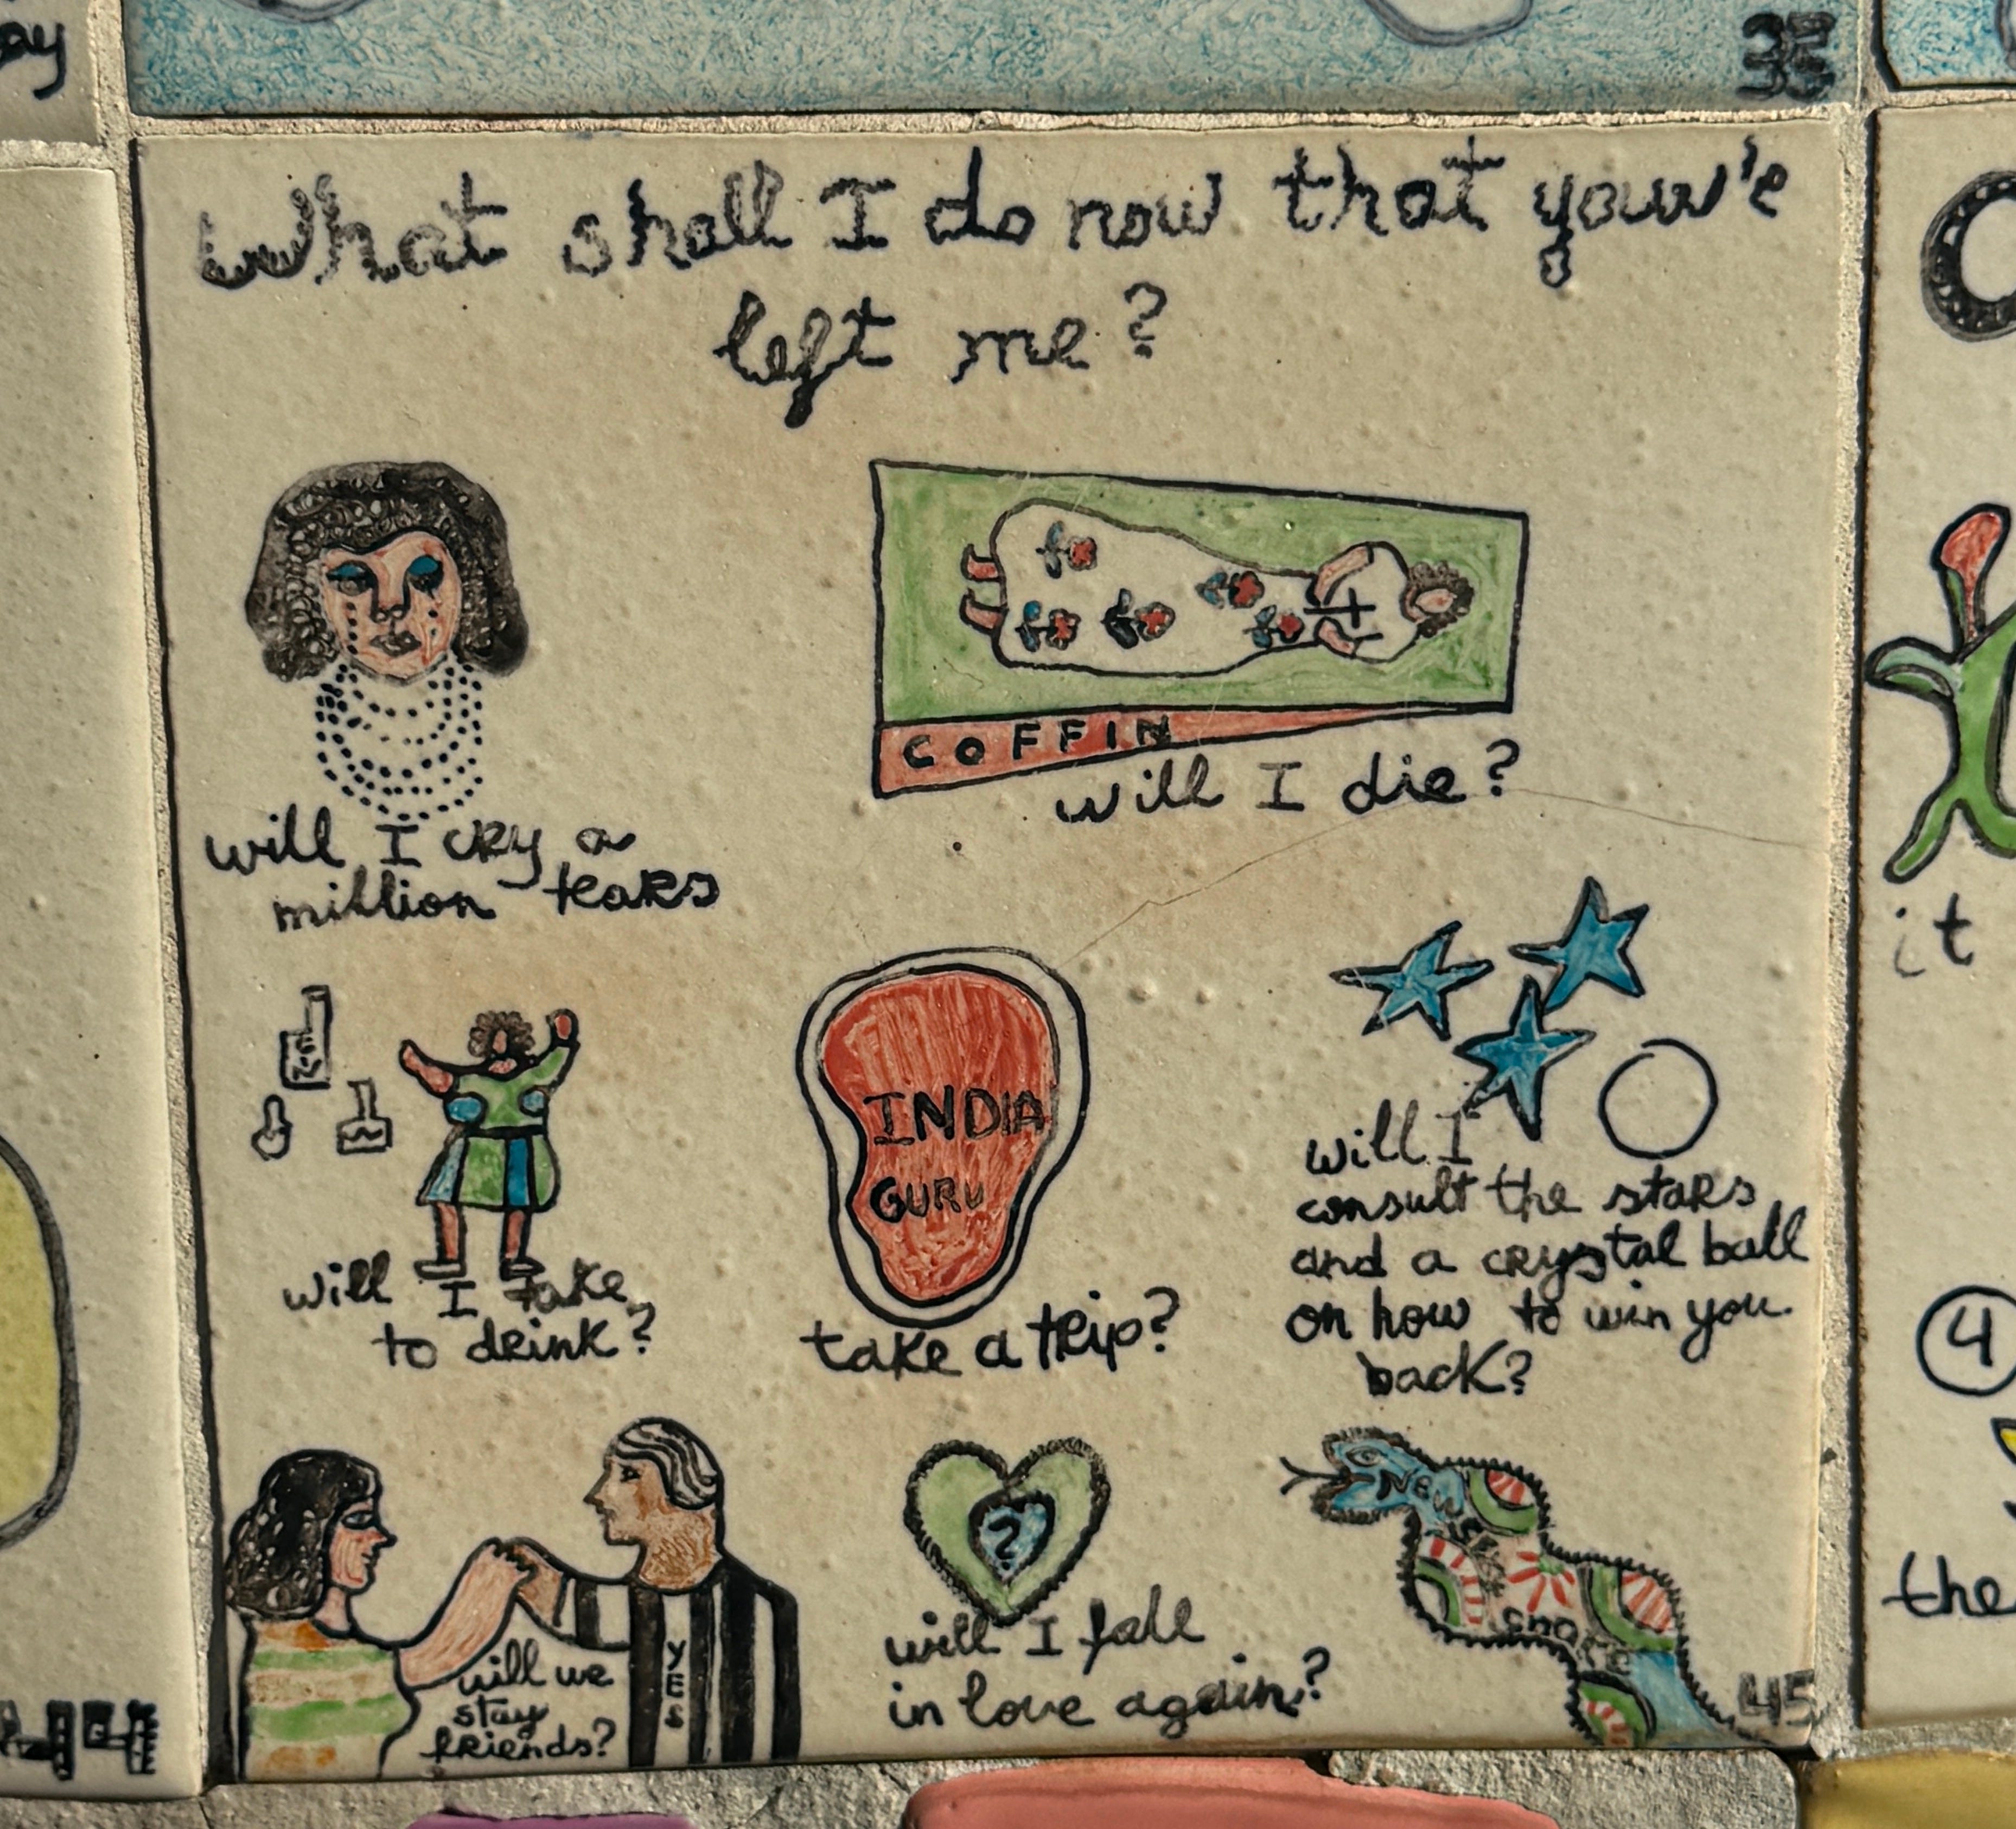 ay
35
What shall I do now that youw'e
left me?
COFFIN
will I die?
will I cry a
million tears
will I take
to drink?
INDIA
GURU
take a trip?
will I
consult the stars
and a crystal ball
on how to win you
back?
it
4
will we
stay
friends?
YES
?
will I fall
in love again?
NEW
the
44
45